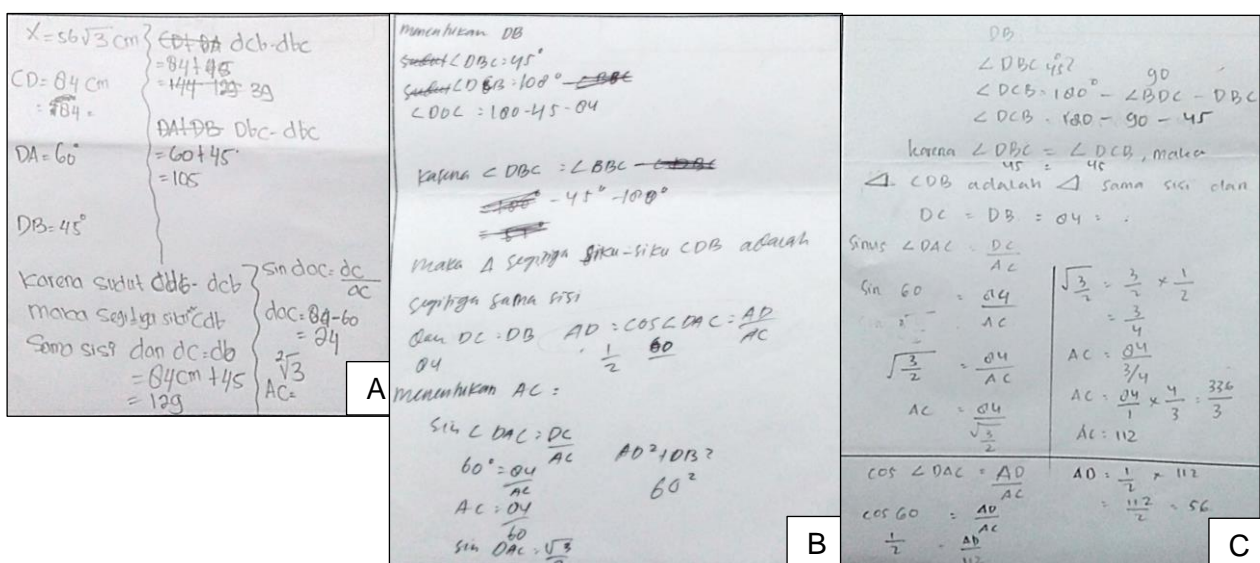 X = 56√3 cm
CD = 84 cm
= 84 =
DA = 60°
DB = 45°
CD + DA dcb - dbc
= 84 + 45
= 144 129 39
DA + DB Dbc - dbc
= 60 + 45
= 105
Karena sudut dbc - dcb
maka segitiga siku² cdb
Sama sisi dan dc = db
= 84 cm + 45
= 129
sin dac = dc/ac
dac = 84 - 60
= 24
²√3
AC =
A
menentukan DB
sudut ∠DBC = 45°
sudut ∠DCB = 180° -
∠DDC = 180 - 45 - 84
Karena ∠DBC = ∠BBC -
- 45° - 180°
maka Δ segitiga siku-siku CDB adalah
segitiga sama sisi
dan DC = DB AD = COS ∠DAC = AD/AC
84 1/2 60
menentukan AC =
Sin ∠DAC = DC/AC
60° = 84/AC
AC = 84/60
sin DAC = √3/2
AD² + DB²
60²
B
DB
∠DBC 45°?
∠DCB = 180° - ∠BDC - DBC
90
∠DCB = 180 - 90 - 45
karena ∠DBC = ∠DCB, maka
45 = 45
⊿ CDB adalah ⊿ sama sisi dan
DC = DB = 84 = .
Sinus ∠DAC = DC/AC
Sin 60 = 84/AC
√3/2 = 84/AC
AC = 84/√3/2
√3/2 = 3/2 × 1/2
= 3/4
AC = 84/3/4
AC = 84/1 × 4/3 = 336/3
AC = 112
cos ∠DAC = AD/AC
cos 60 = AD/AC
1/2 = AD/112
AD = 1/2 × 112
= 112/2 = 56
C